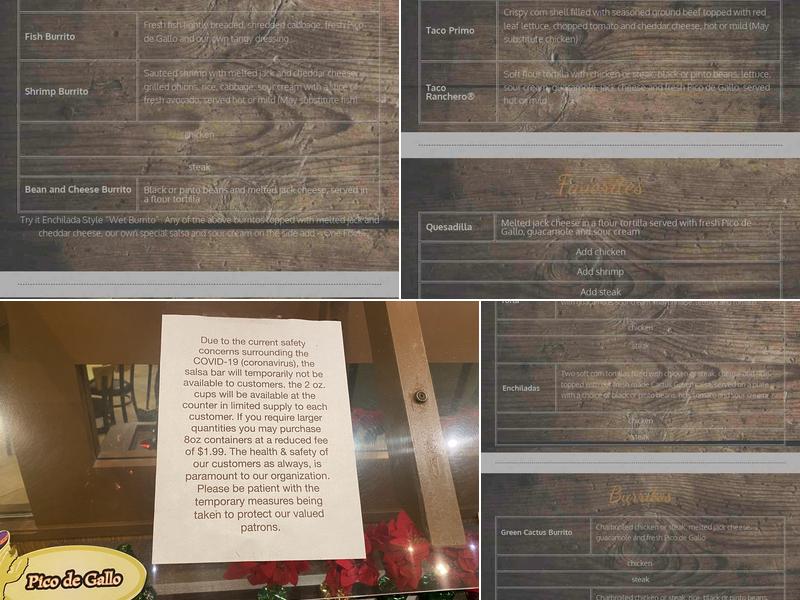 Fish Burrito
Fresh fish lightly breaded, shredded cabbage, fresh Pico
de Gallo and our own tangy dressing
Shrimp Burrito
Sauteed shrimp with melted jack and cheddar cheese,
grilled onions, rice, cabbage, sour cream with a slice of
fresh avocado, served hot or mild (May substitute fish)
chicken
steak
Bean and Cheese Burrito
Black or pinto beans and melted jack cheese, served in
a flour tortilla
Try it Enchilada Style "Wet Burrito": Any of the above burritos topped with melted jack and
cheddar cheese, our own special salsa and sour cream on the side add
Taco Primo
Crispy corn shell filled with seasoned ground beef topped with red
leaf lettuce, chopped tomato and cheddar cheese, hot or mild (May
substitute chicken)
Taco
Ranchero®
Soft flour tortilla with chicken or steak, black or pinto beans, lettuce,
sour cream, guacamole, jack cheese and fresh Pico de Gallo, served
hot or mild
Favorites
Quesadilla
Melted jack cheese in a flour tortilla served with fresh Pico de
Gallo, guacamole and sour cream
Add chicken
Add shrimp
Add steak
Due to the current safety
concerns surrounding the
COVID-19 (coronavirus), the
salsa bar will temporarily not be
available to customers. the 2 oz.
cups will be available at the
counter in limited supply to each
customer. If you require larger
quantities you may purchase
8oz containers at a reduced fee
of $1.99. The health & safety of
our customers as always, is
paramount to our organization.
Please be patient with the
temporary measures being
taken to protect our valued
patrons.
Pico de Gallo
chicken
steak
Enchiladas
Two soft corn tortillas filled with chicken or steak,
topped with our fresh made Cactus Green salsa, served on a plate
with a choice of black or pinto beans, rice, tomato and sour cream
chicken
steak
Burritos
Green Cactus Burrito
Charbroiled chicken or steak, melted jack cheese,
guacamole and fresh Pico de Gallo
chicken
steak
Charbroiled chicken or steak, rice, black or pinto beans,